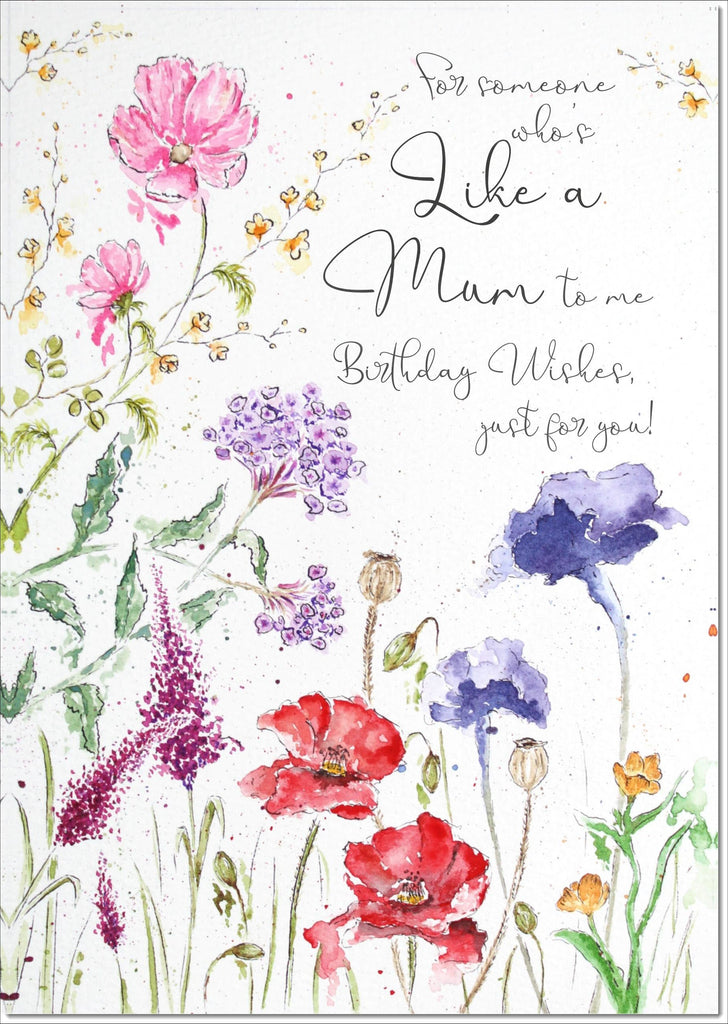 For someone
who's
Like a
Mum to me
Birthday Wishes,
just for you!